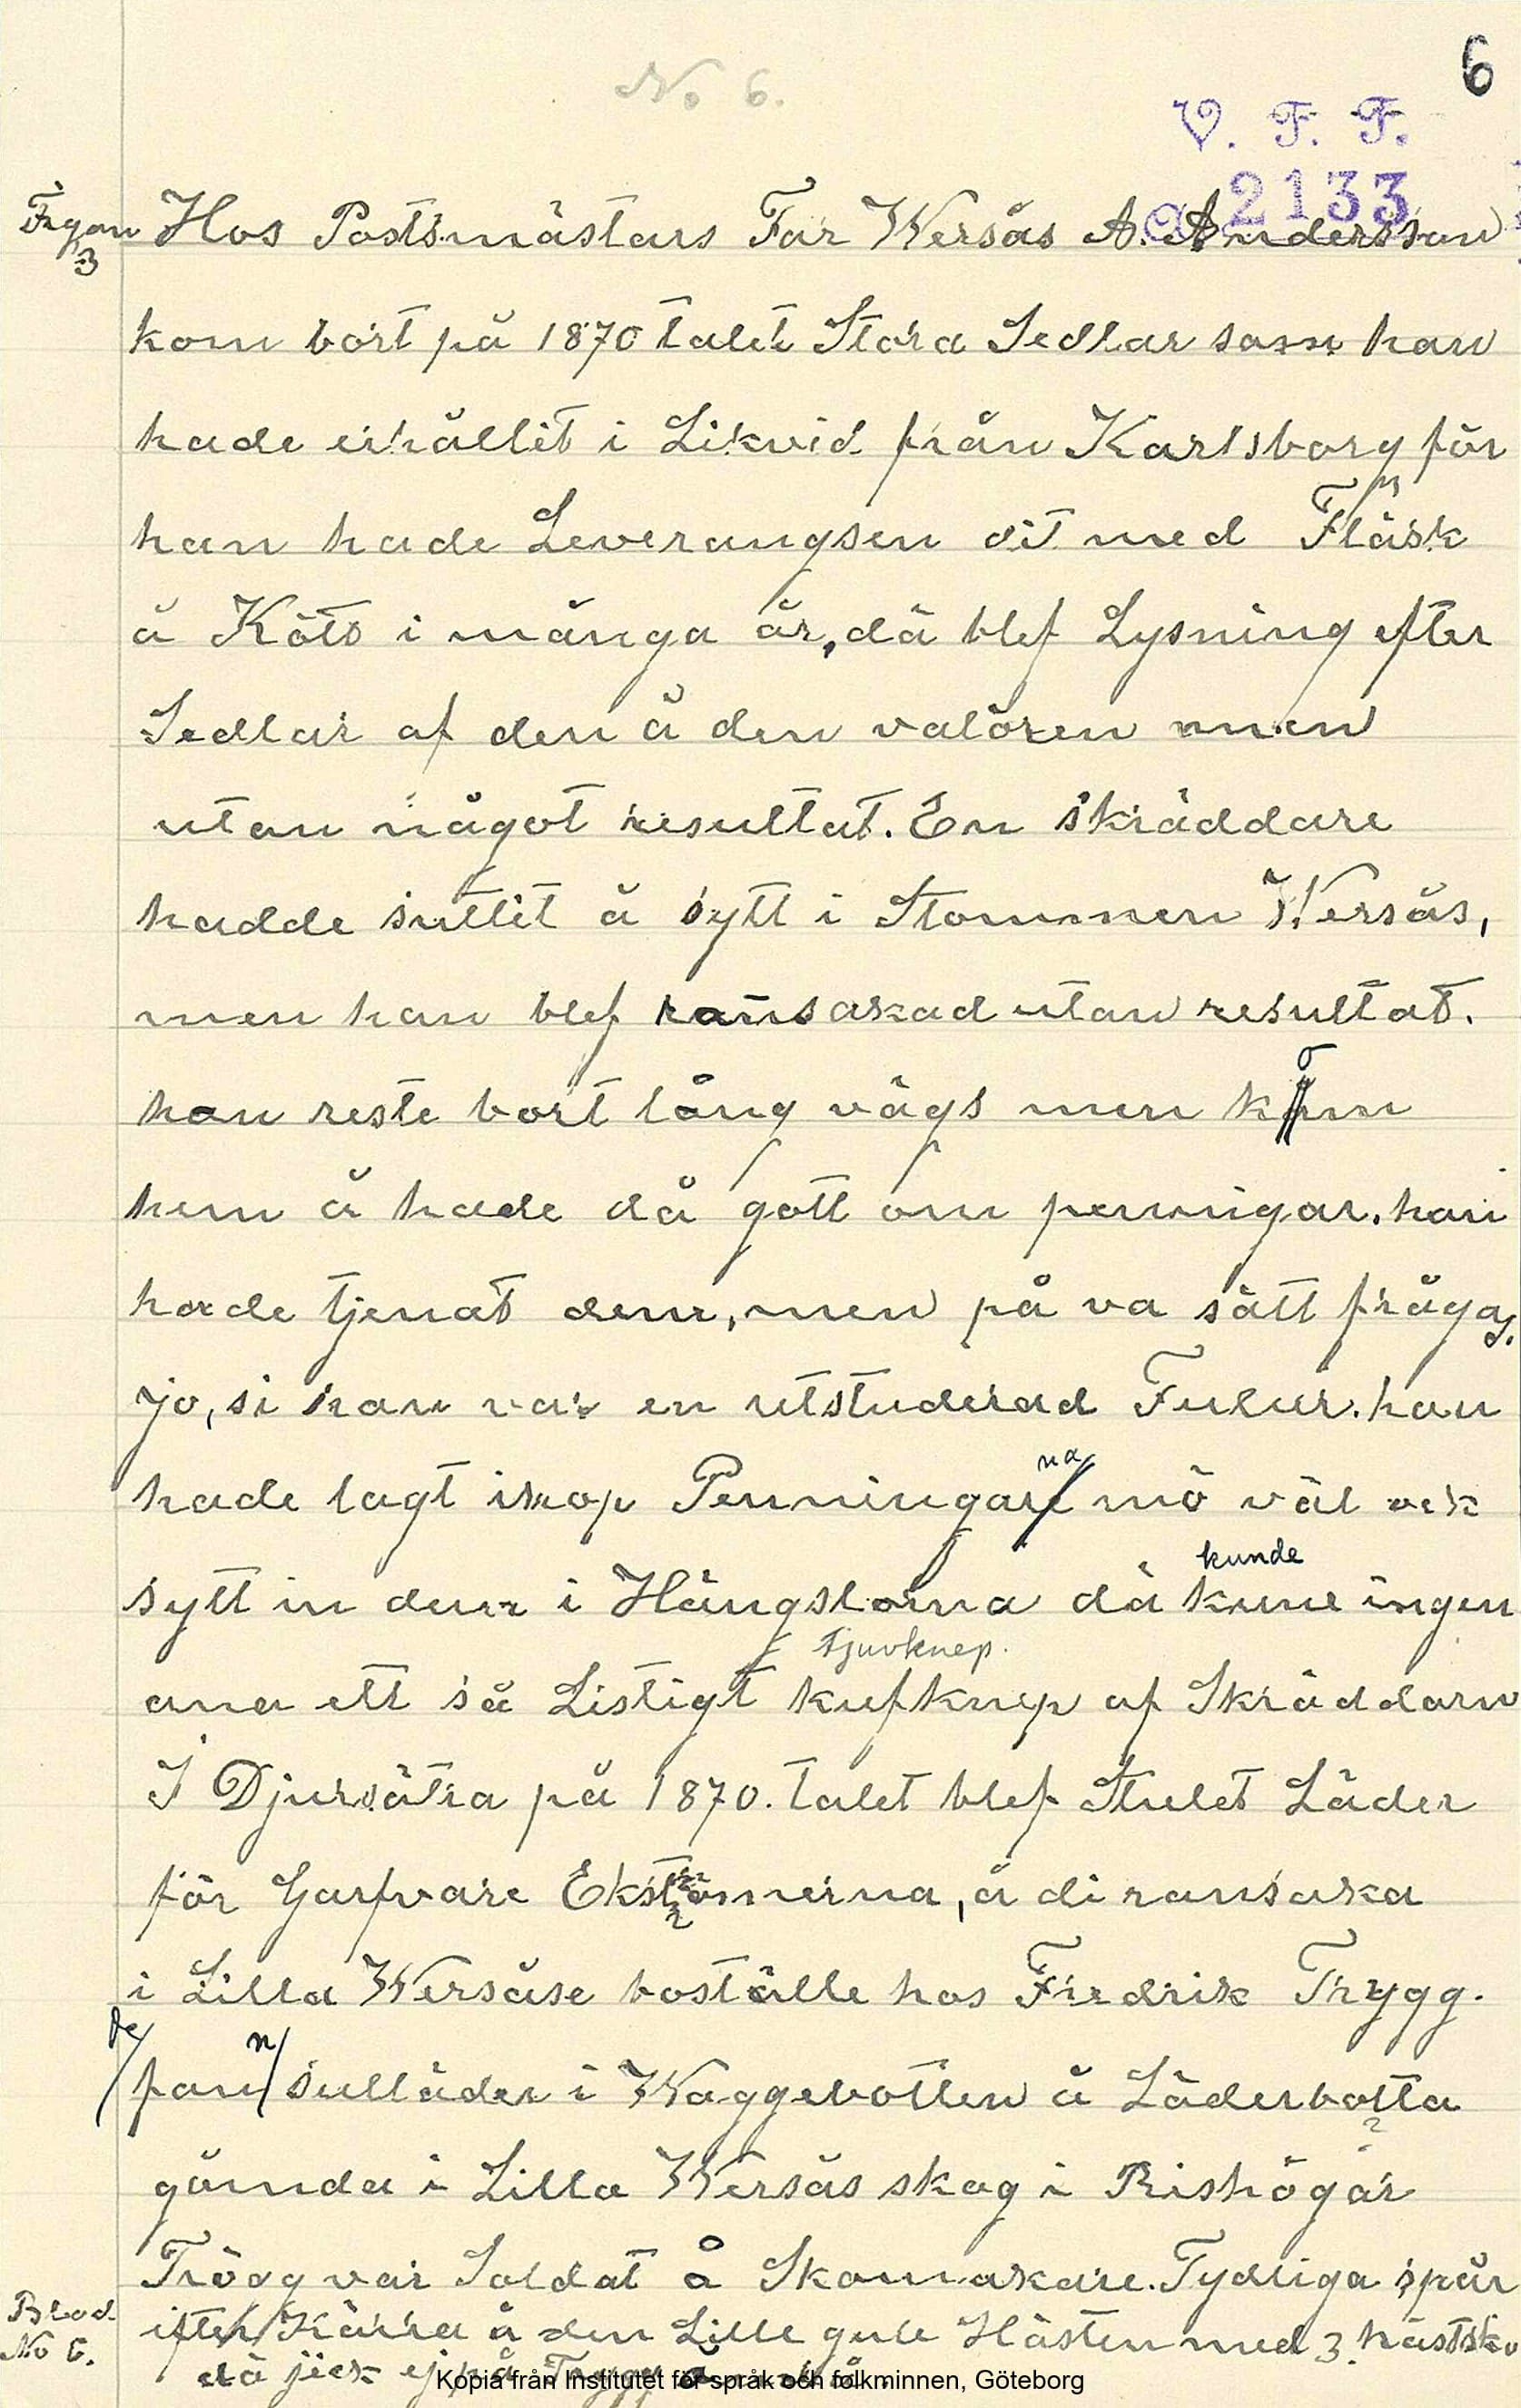 6
No 6.
V. F. F.
a 2133
Frgan 3
Hos Postsmästars Far Wersås A. Andersson
kom bort på 1870 talet Stora Sedlar som han
hade erhållit i Likvid från Karlsborg för
han hade Leverangsen dit med Fläsk
å Kött i många år, då blef Lysning efter
Sedlar af den å den valören men
utan något resultat. En skräddare
hadde suttit å sytt i Stommen Wersås,
men han blef ransakad utan resultat.
han reste bort lång vägs men köm
hem å hade då gott om penningar. han
hade tjenat dem, men på va sätt frågas.
jo, si han var en utstuderad Fulur. han
hade lagt ihop Penningarna mö väl ock
kunde
sytt in dem i Hängslorna då kune ingen
tjuvknep.
ana ett så Listigt kufknep af Skräddarn
I Djursätra på 1870. talet blef Stulet Läder
för Garfvare Ekströmerna, å di ransaka
i Lilla Wersåse boställe hos Fredrik Trygg.
de/ fann sulläder i Waggebotten å Läderbotta
gömda i Lilla Wersås skog i Rishögar
Trögg var Soldat å Skomakare. Tydliga spår
Blad No 6.
efter Kärra å den Lille gule Hästen med 3 hästsko
då jick ej på Trygg
Kopia från Institutet för språk och folkminnen, Göteborg